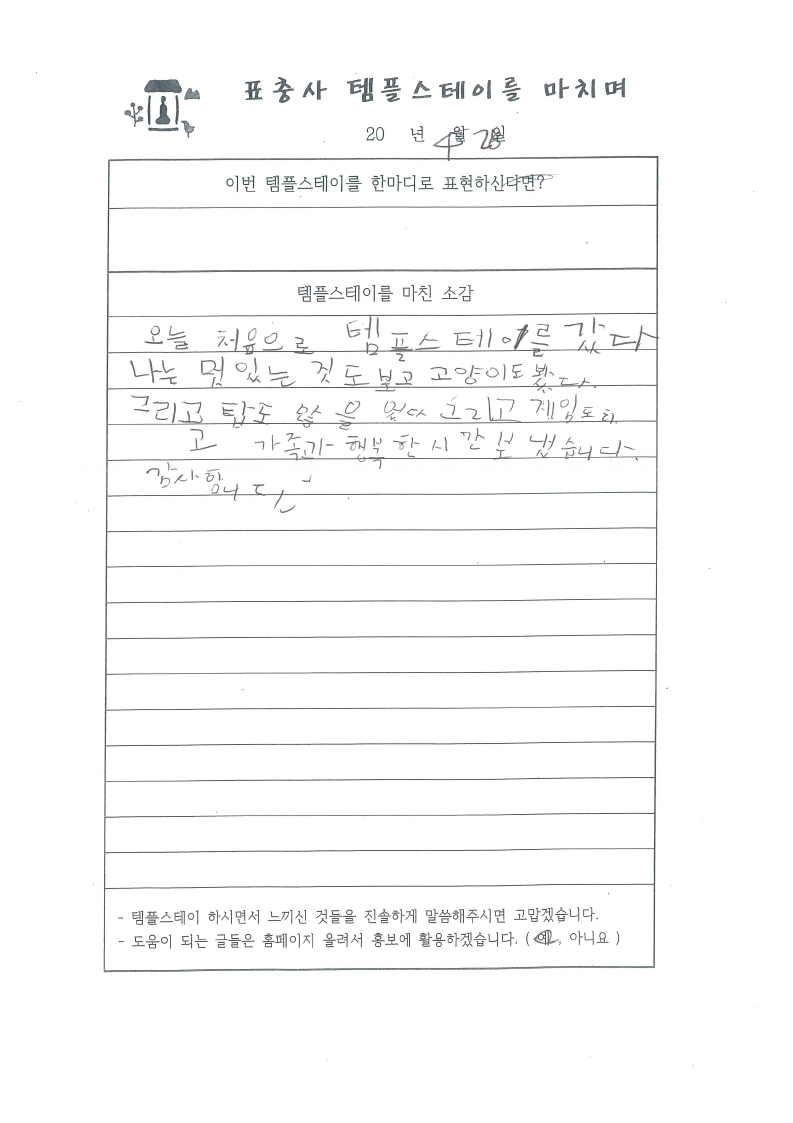 표충사 템플스테이를 마치며
20 년 4월 28일
이번 템플스테이를 한마디로 표현하신다면?
템플스테이를 마친 소감
오늘 처음으로 템플스테이를 갔다
나는 멋있는 것도 보고 고양이도 봤다.
그리고 탑도 그리고 게임도 하
고 가족과 행복한 시간 보냈습니다.
감사합니다
- 템플스테이 하시면서 느끼신 것들을 진솔하게 말씀해주시면 고맙겠습니다.
- 도움이 되는 글들은 홈페이지 올려서 홍보에 활용하겠습니다. ( 예, 아니요 )